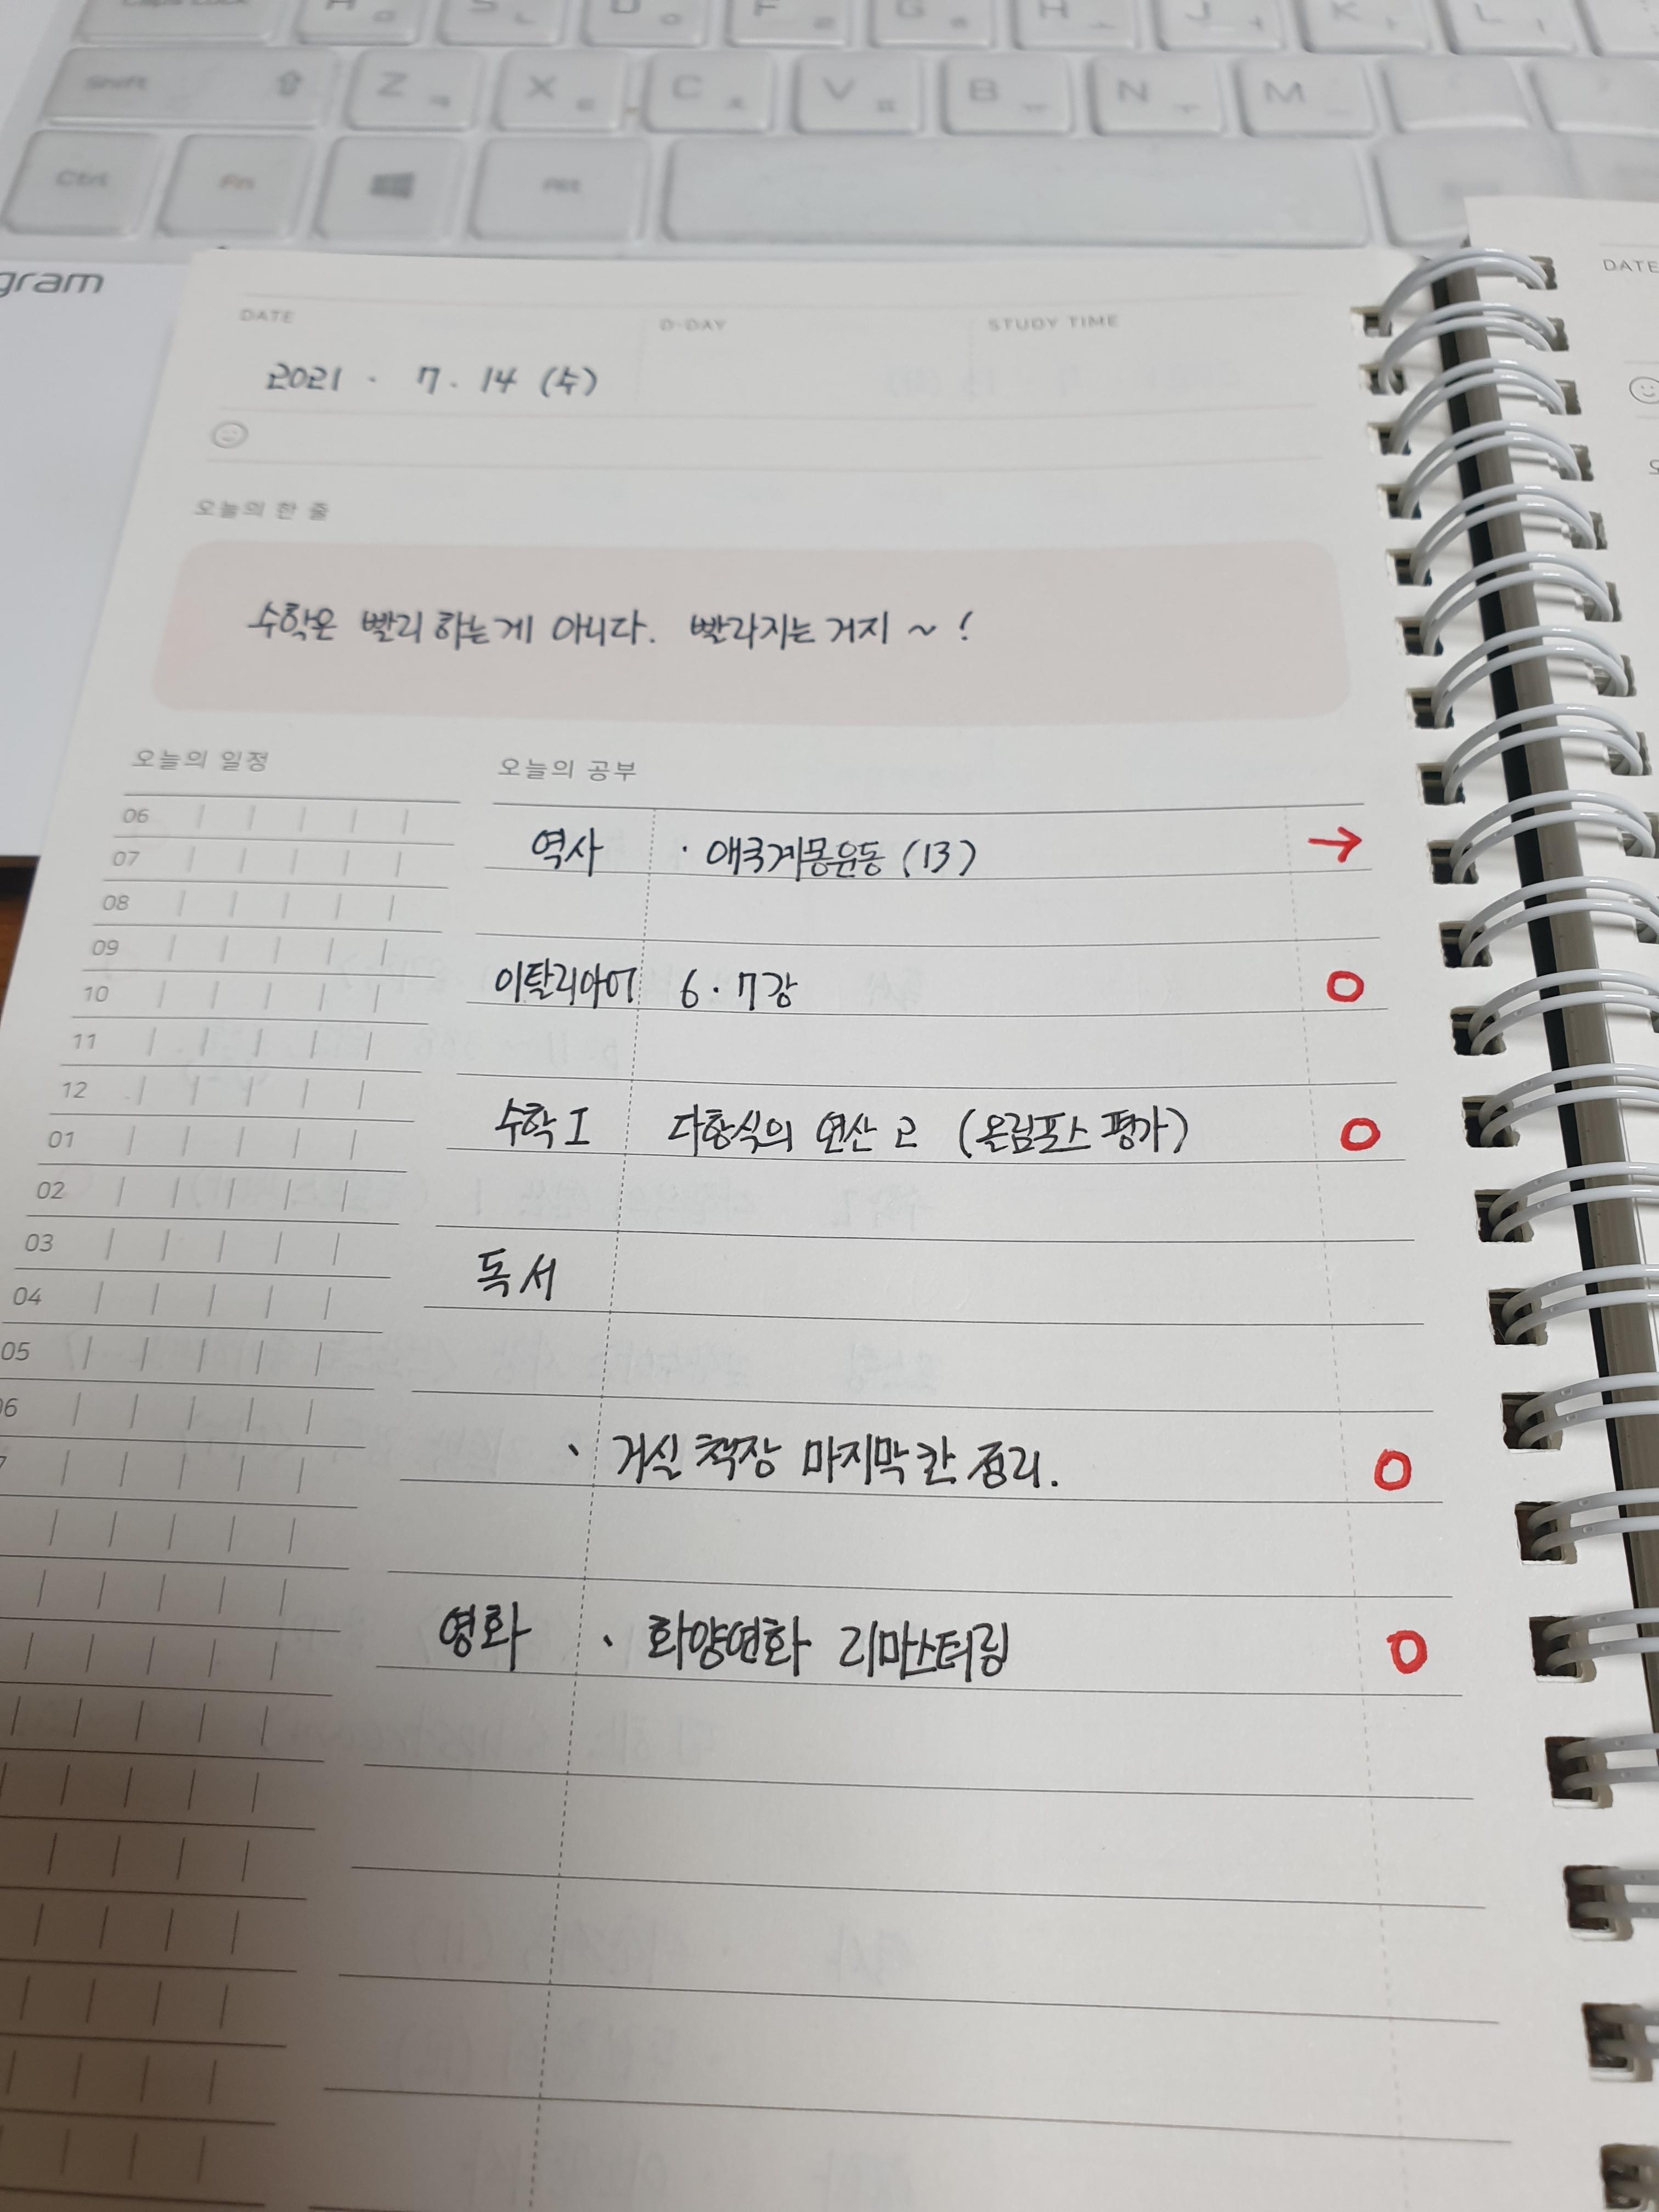 Caps Lock A S D F G H J K L
Shift Z X C V B N M
Ctrl Fn Alt
gram
DATE D-DAY STUDY TIME
2021 . 7 . 14 (수)
오늘의 한 줄
수학은 빨리 하는게 아니다. 빨라지는 거지 ~ !
오늘의 일정
오늘의 공부
06
역사 · 애국계몽운동 (13) →
07
08
09
이탈리아어 6 · 7강 O
10
11
12
수학 I 다항식의 연산 2 (올림포스 평가) O
01
02
03
독서
04
05
06
· 거실 책장 마지막 칸 정리. O
영화 · 화양연화 리마스터링 O
DATE